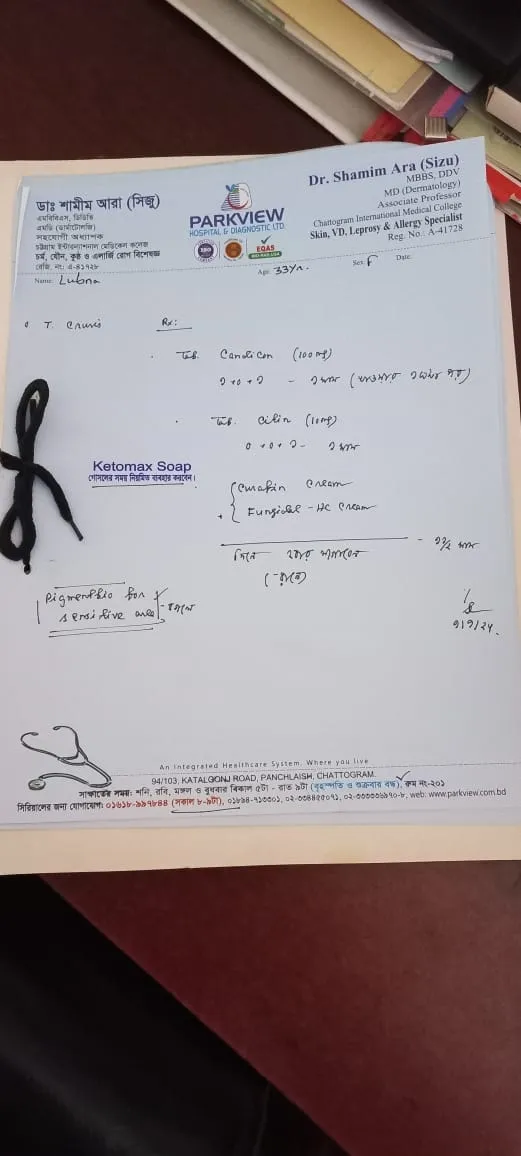 ডাঃ শামীম আরা (সিজু)
এমবিবিএস, ডিডিভি
এমডি (ডার্মাটোলজি)
সহযোগী অধ্যাপক
চট্টগ্রাম ইন্টারন্যাশনাল মেডিকেল কলেজ
চর্ম, যৌন, কুষ্ঠ ও এলার্জি রোগ বিশেষজ্ঞ
রেজি. নং: এ-৪১৭২৮
PARKVIEW
HOSPITAL & DIAGNOSTIC LTD.
ISO
EQAS
BIO-RAD, USA
Dr. Shamim Ara (Sizu)
MBBS, DDV
MD (Dermatology)
Associate Professor
Chattogram International Medical College
Skin, VD, Leprosy & Allergy Specialist
Reg. No.: A-41728
Name: Lubna Age: 33 Yr. Sex: F Date:
T. Cruris Rx:
Tab. Candicon (100 mg)
১+০+১ - ১ মাস
Tab. Cilin (10mg)
০+০+১ - ১ মাস
Ketomax Soap
গোসলের সময় নিয়মিত ব্যবহার করবেন।
Cream
Fungidal-HC Cream
দিনে
(রাতে)
Pigmentbio for
sensitive area
An Integrated Healthcare System, Where you live
94/103, KATALGONJ ROAD, PANCHLAISH, CHATTOGRAM.
সাক্ষাতের সময়: শনি, রবি, মঙ্গল ও বুধবার বিকাল ৫টা - রাত ৯টা (বৃহস্পতি ও শুক্রবার বন্ধ), রুম নং-২০১
সিরিয়ালের জন্য যোগাযোগ: (সকাল ৮-৯টা), web: www.parkview.com.bd